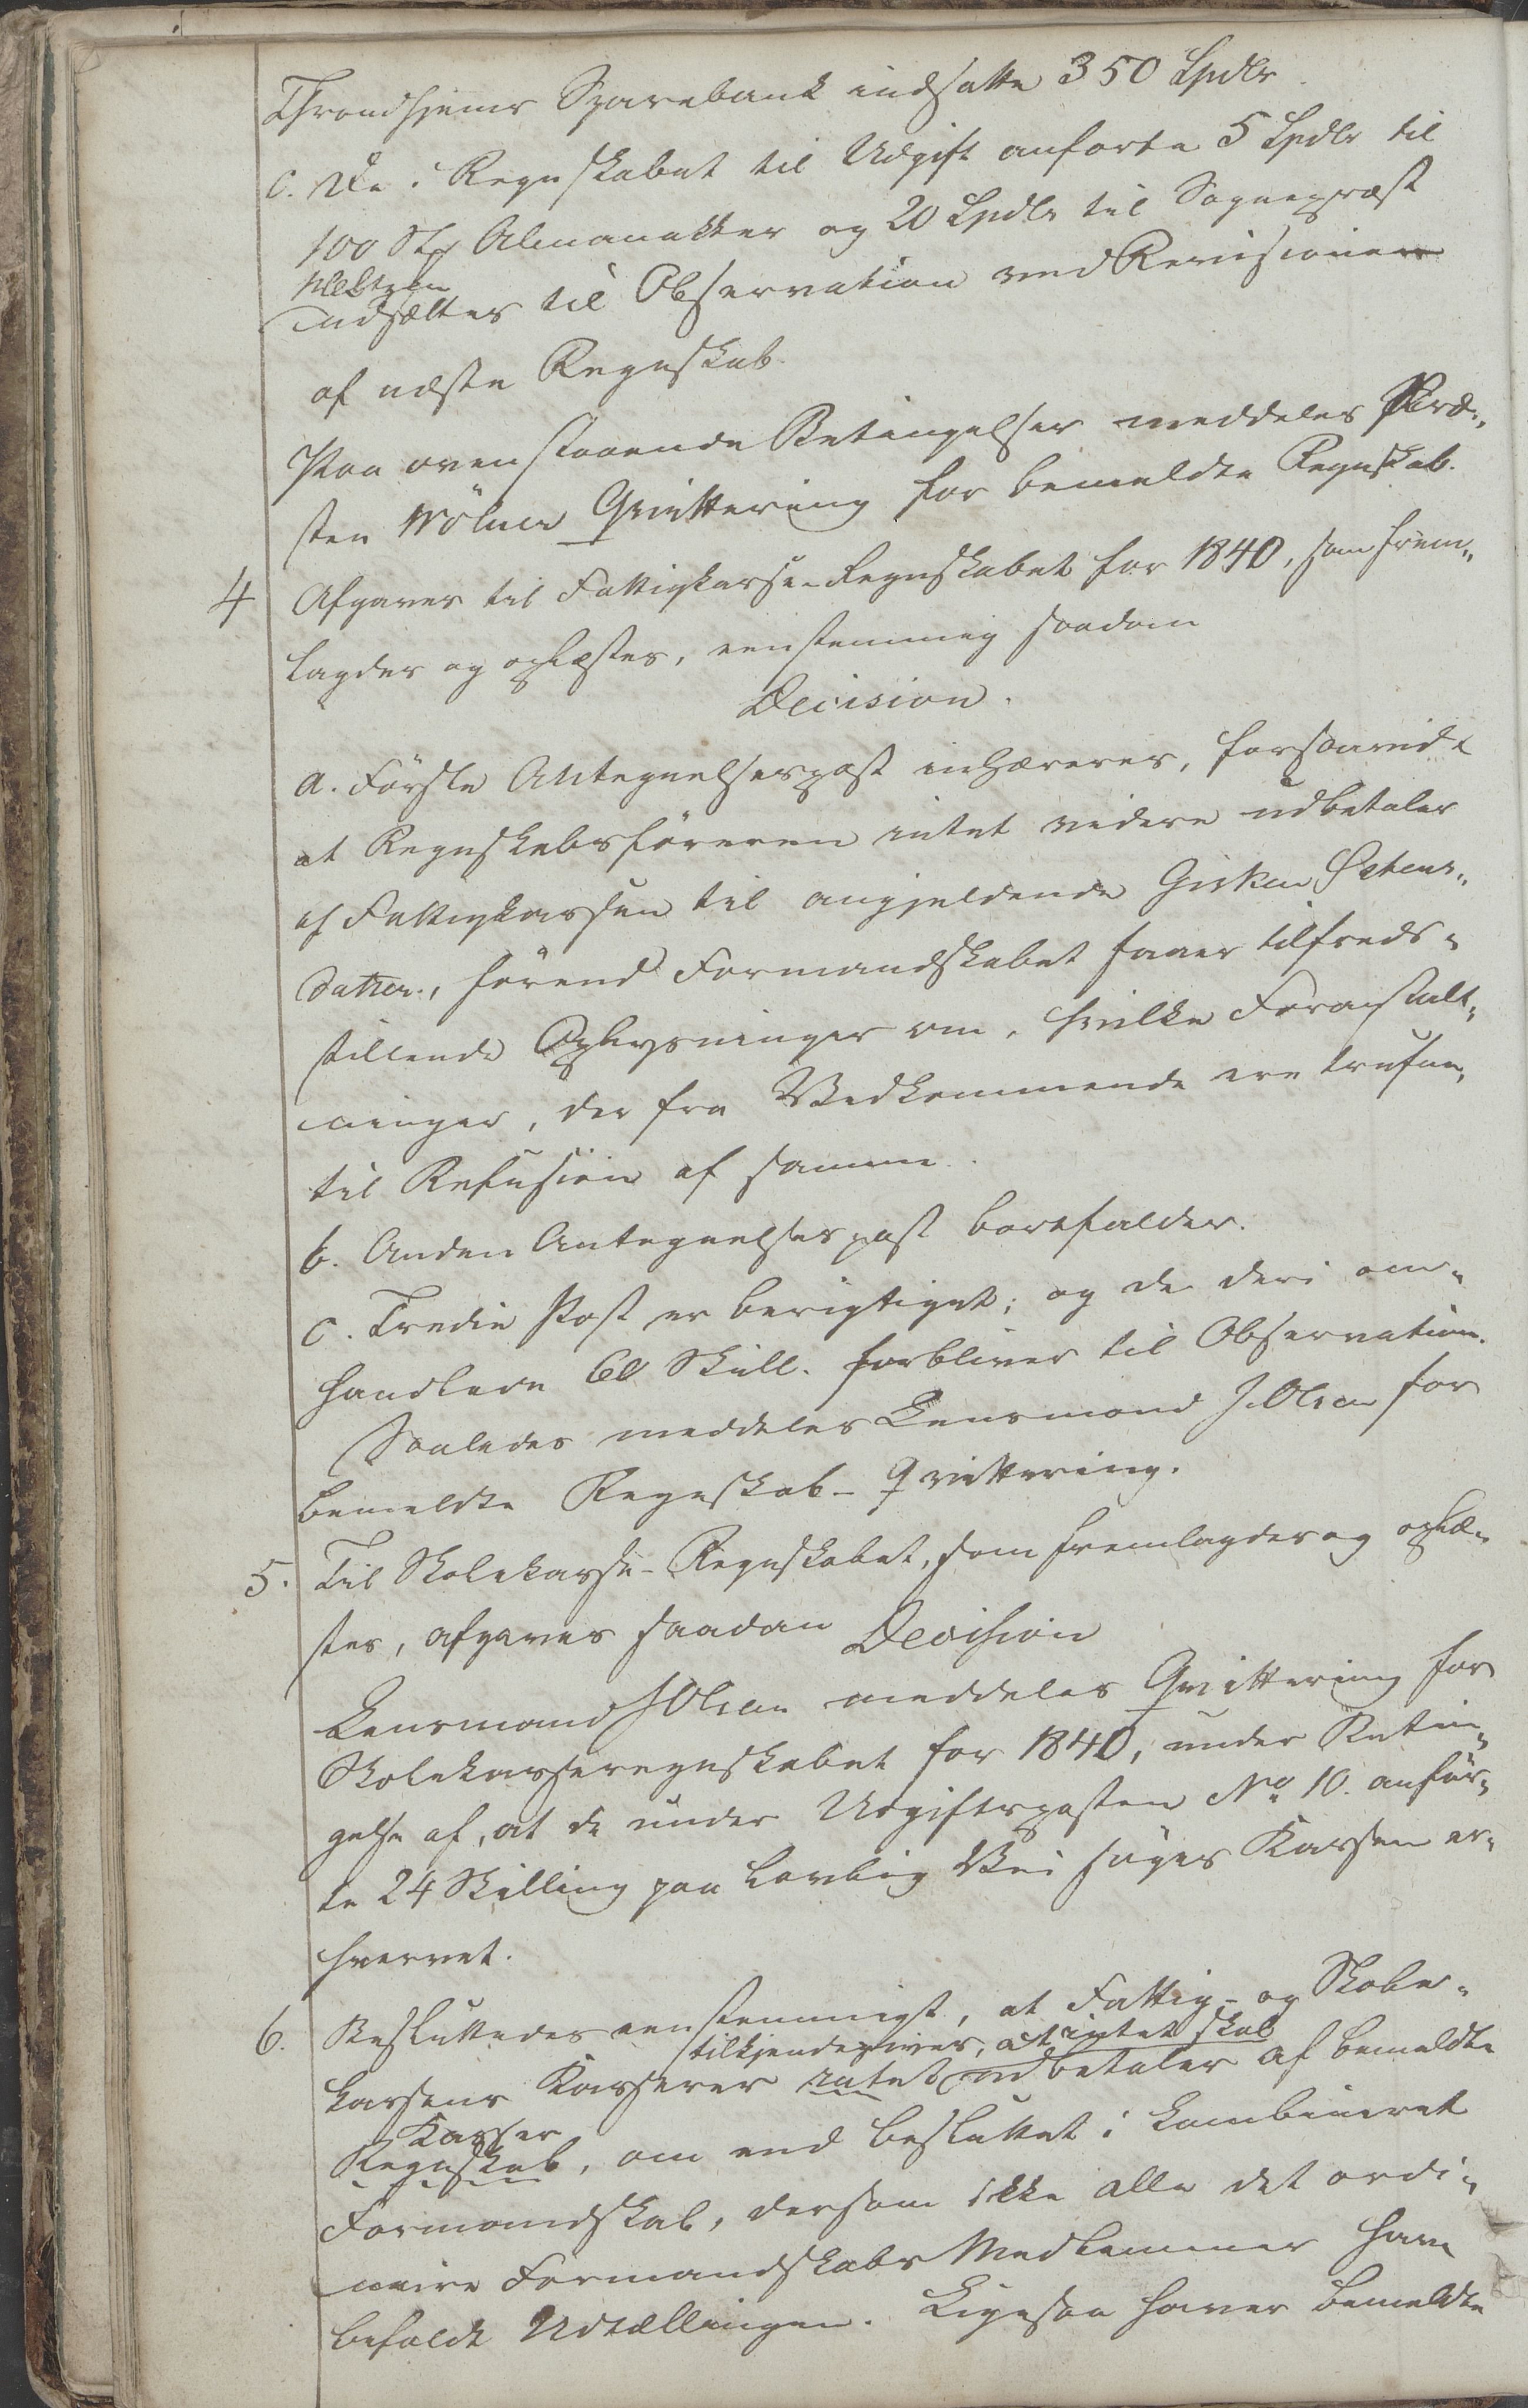 Throndhjems Sparebank indsatte 350 Spdlr.
c. De i Regnskabet til Udgift anførte 5 Spdlr til
100 Stk Almanakker og 20 Spdlr til Sognepræst
indsættes til Observation ved Revisionen
af næste Regnskab.
Paa ovenstaaende Betingelser meddeles Præ„
sten Mølner Qvittering for bemeldte Regnskab.
4 Afgaves til Fattigkasse-Regnskabet for 1840, som frem„
lagdes og oplæstes, eenstemmig saadan
Decision.
a. Første Antegnelsespost inhæreres, forsaavidt
at Regnskabsføreren intet videre udbetaler
af Fattigkassen til angjeldende Gisken
datter, førend Formandskabet faaer tilfreds„
stillende Oplysninger om, hvilke Foranstalt„
ninger, der fra Vedkommende ere trufne,
til Refusion af samme.
b. Anden Antegnelsespost bortfalder.
c. Tredie Post er berigtiget; og de deri om„
handlede 60 Skill. forbliver til Observation.
Saaledes meddeles Lensmand J. Olsen for
bemeldte Regnskab - Qvittering.
5. Til Skolekasse-Regnskabet, som fremlagdes og oplæ„
stes, afgaves saadan Decision
Lensmand J Olsen meddeles Qvittering for
Skolekasseregnskabet for 1840, under Betin„
gelse af, at de under Udgiftsposten No 10. anfør„
te 24 Skilling paa lovlig Vei søges Kassen er„
hvervet.
6. Besluttedes eenstemmigt, at Fattig- og Skole„
tilkjendegives, at intet skal
kassens Kasserer intet udbetaler af bemeldte
Kasser
Regnskab, om end besluttet i kombineret
Formandskab, dersom ikke alle det ordi„
naire Formandskabs Medlemmer have
befalet Udtællingen. Ligesaa haver bemeldte